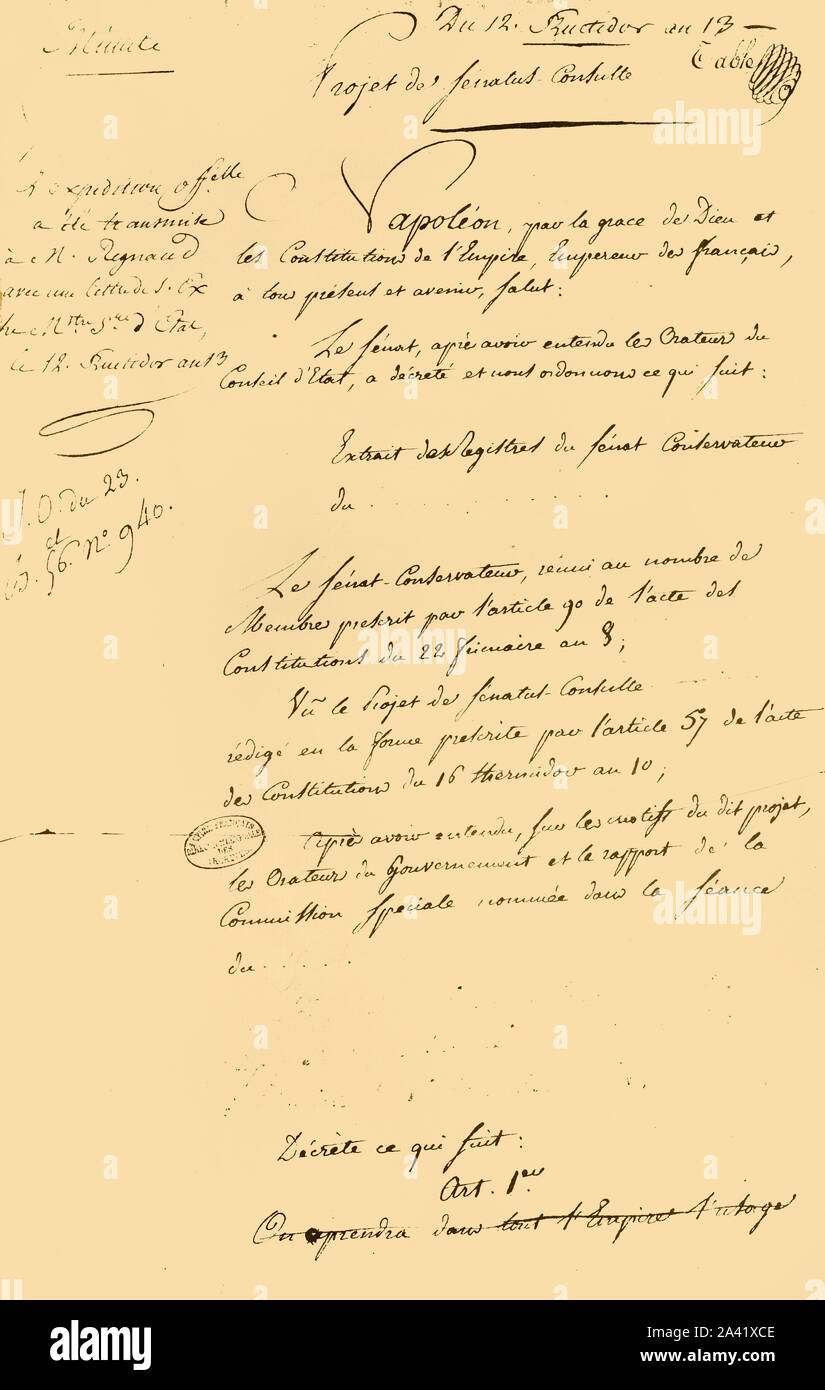 Minute
Du 12. Fructidor an 13
Table
Projet de Sénatus-Consulte
L'expédition offelle
a été transmise
à M. Regnaud
avec une lettre de S. Ex
le Mtre Sre d'Etat,
le 12. Fructidor an 13
J. O. du 23.
et
B. 56. No. 940.
Napoléon, par la grace de Dieu et
les Constitutions de l'Empire, Empereur des français,
à tous présens et avenir, Salut:
Le Sénat, après avoir entendu les Orateurs du
Conseil d'Etat, a décrété et nous ordonnons ce qui suit:
Extrait des Registres du Sénat Conservateur
du . . . . . . . .
Le Sénat-Conservateur, réuni au nombre de
Membres prescrit par l'article 90 de l'acte des
Constitutions du 22 frimaire an 8;
Vu le Projet de Sénatus-Consulte
rédigé en la forme prescrite par l'article 57 de l'acte
des Constitutions du 16 thermidor an 10;
Après avoir entendu, sur les motifs du dit projet,
les Orateurs du Gouvernement et le rapport de la
Commission Spéciale nommée dans la séance
du . . . . .
Décrète ce qui suit:
Art. 1er
On reprendra dans tout l'Empire l'usage
alamy
Image ID: 2A41XCE
www.alamy.com